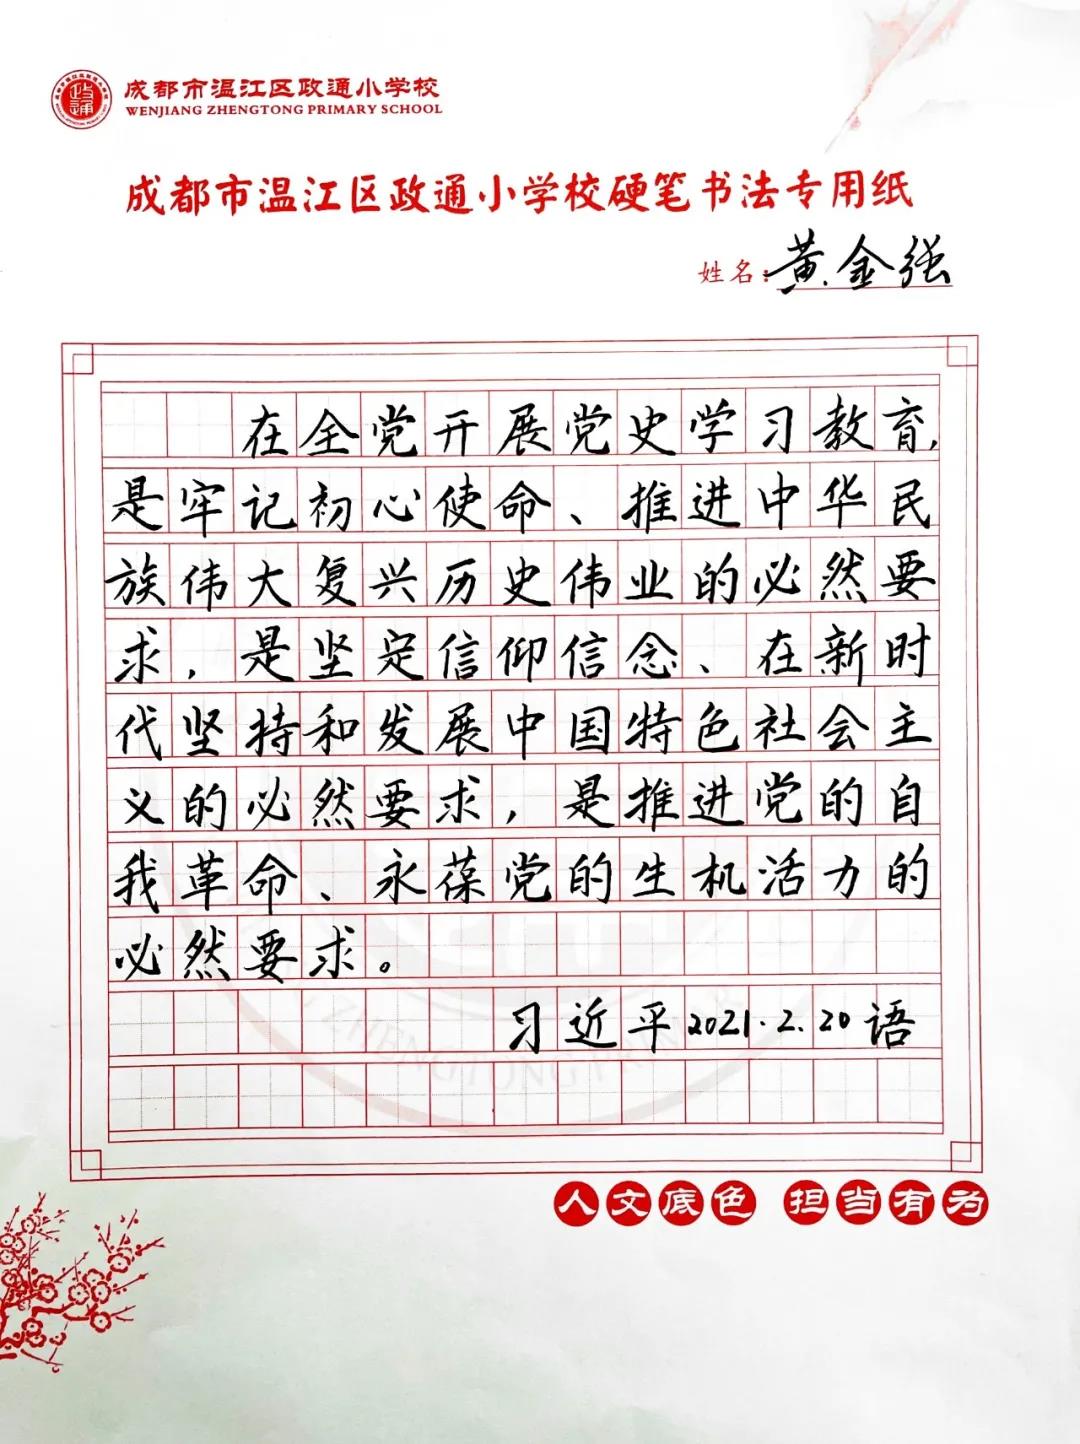 成都市温江区政通小学校
WENJIANG ZHENGTONG PRIMARY SCHOOL
成都市温江区政通小学校硬笔书法专用纸
姓名:黄金强
在全党开展党史学习教育,
是牢记初心使命、推进中华民
族伟大复兴历史伟业的必然要
求,是坚定信仰信念、在新时
代坚持和发展中国特色社会主
义的必然要求,是推进党的自
我革命、永葆党的生机活力的
必然要求。
习近平2021.2.20语
ZHENGTONG PRIM
人文底色 担当有为